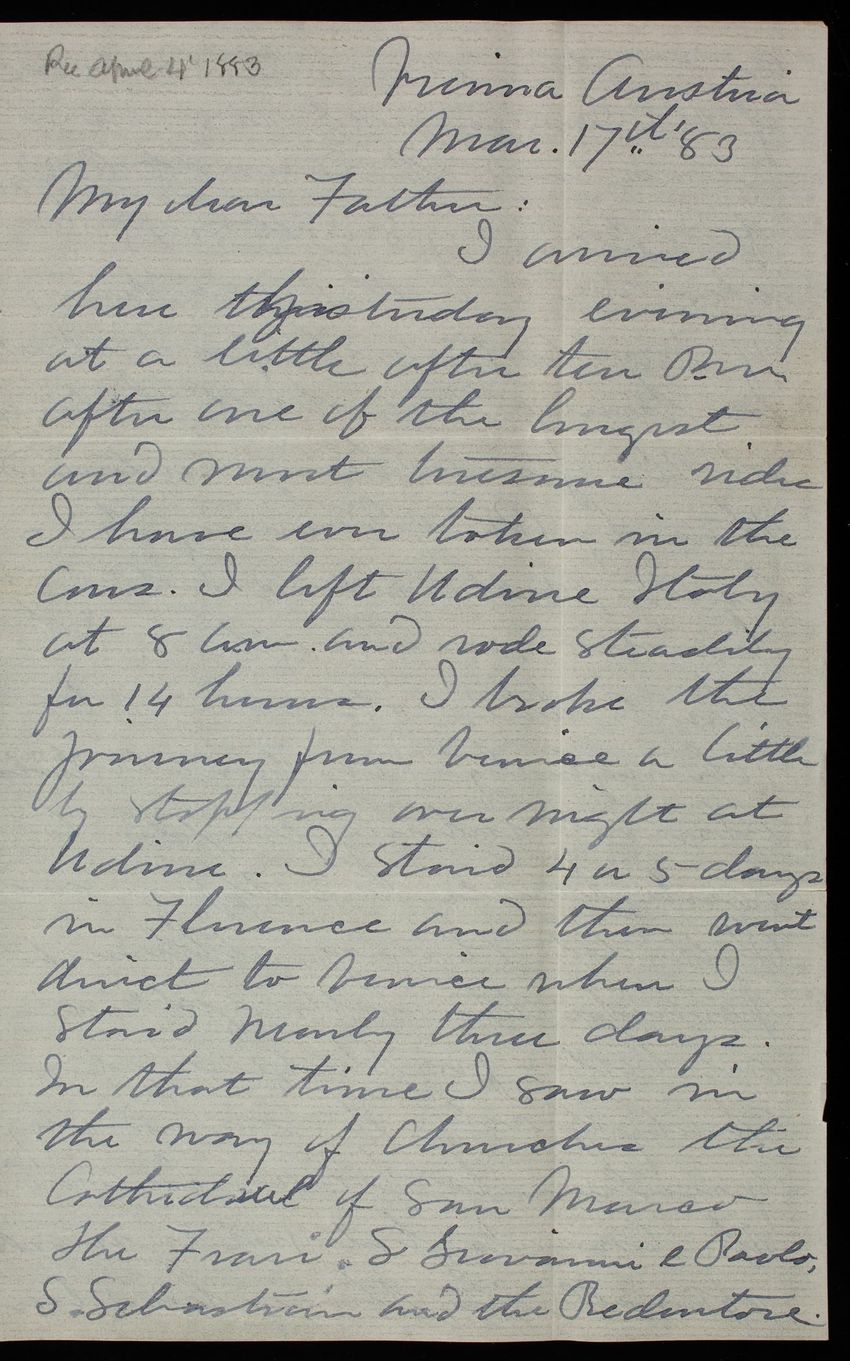 Rec April 4' 1883
Vienna Austria
Mar. 17th '83
My dear Father:
I arrived
here yesterday evening
at a little after ten P.m
after one of the longest
and most tiresome rides
I have ever taken in the
Cars. I left Udine Italy
at 8 a.m. and rode steadily
for 14 hours. I broke the
journey from Venice a little
by stopping over night at
Udine. I staid 4 or 5 days
in Florence and then went
direct to Venice where I
staid nearly three days.
In that time I saw in
the way of Churches the
Cathedral of San Marco
the Frari. S Giovanni e Paolo,
S. Sebastian and the Redentore.